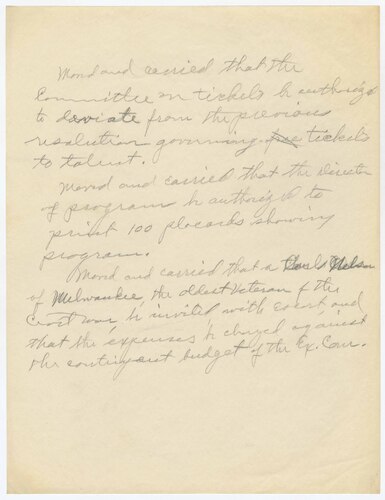 Moved and carried that the
Committee on tickets be authorized
to deviate from the previous
resolution governing free tickets
to talent.
Moved and carried that the Director
of program be authorized to
print 100 placards showing
program.
Moved and carried that a Nelson
of Milwaukee the oldest Veteran of the
war be invited with escort and
that the expenses be charged against
the contingent budget of the Ex. Com.